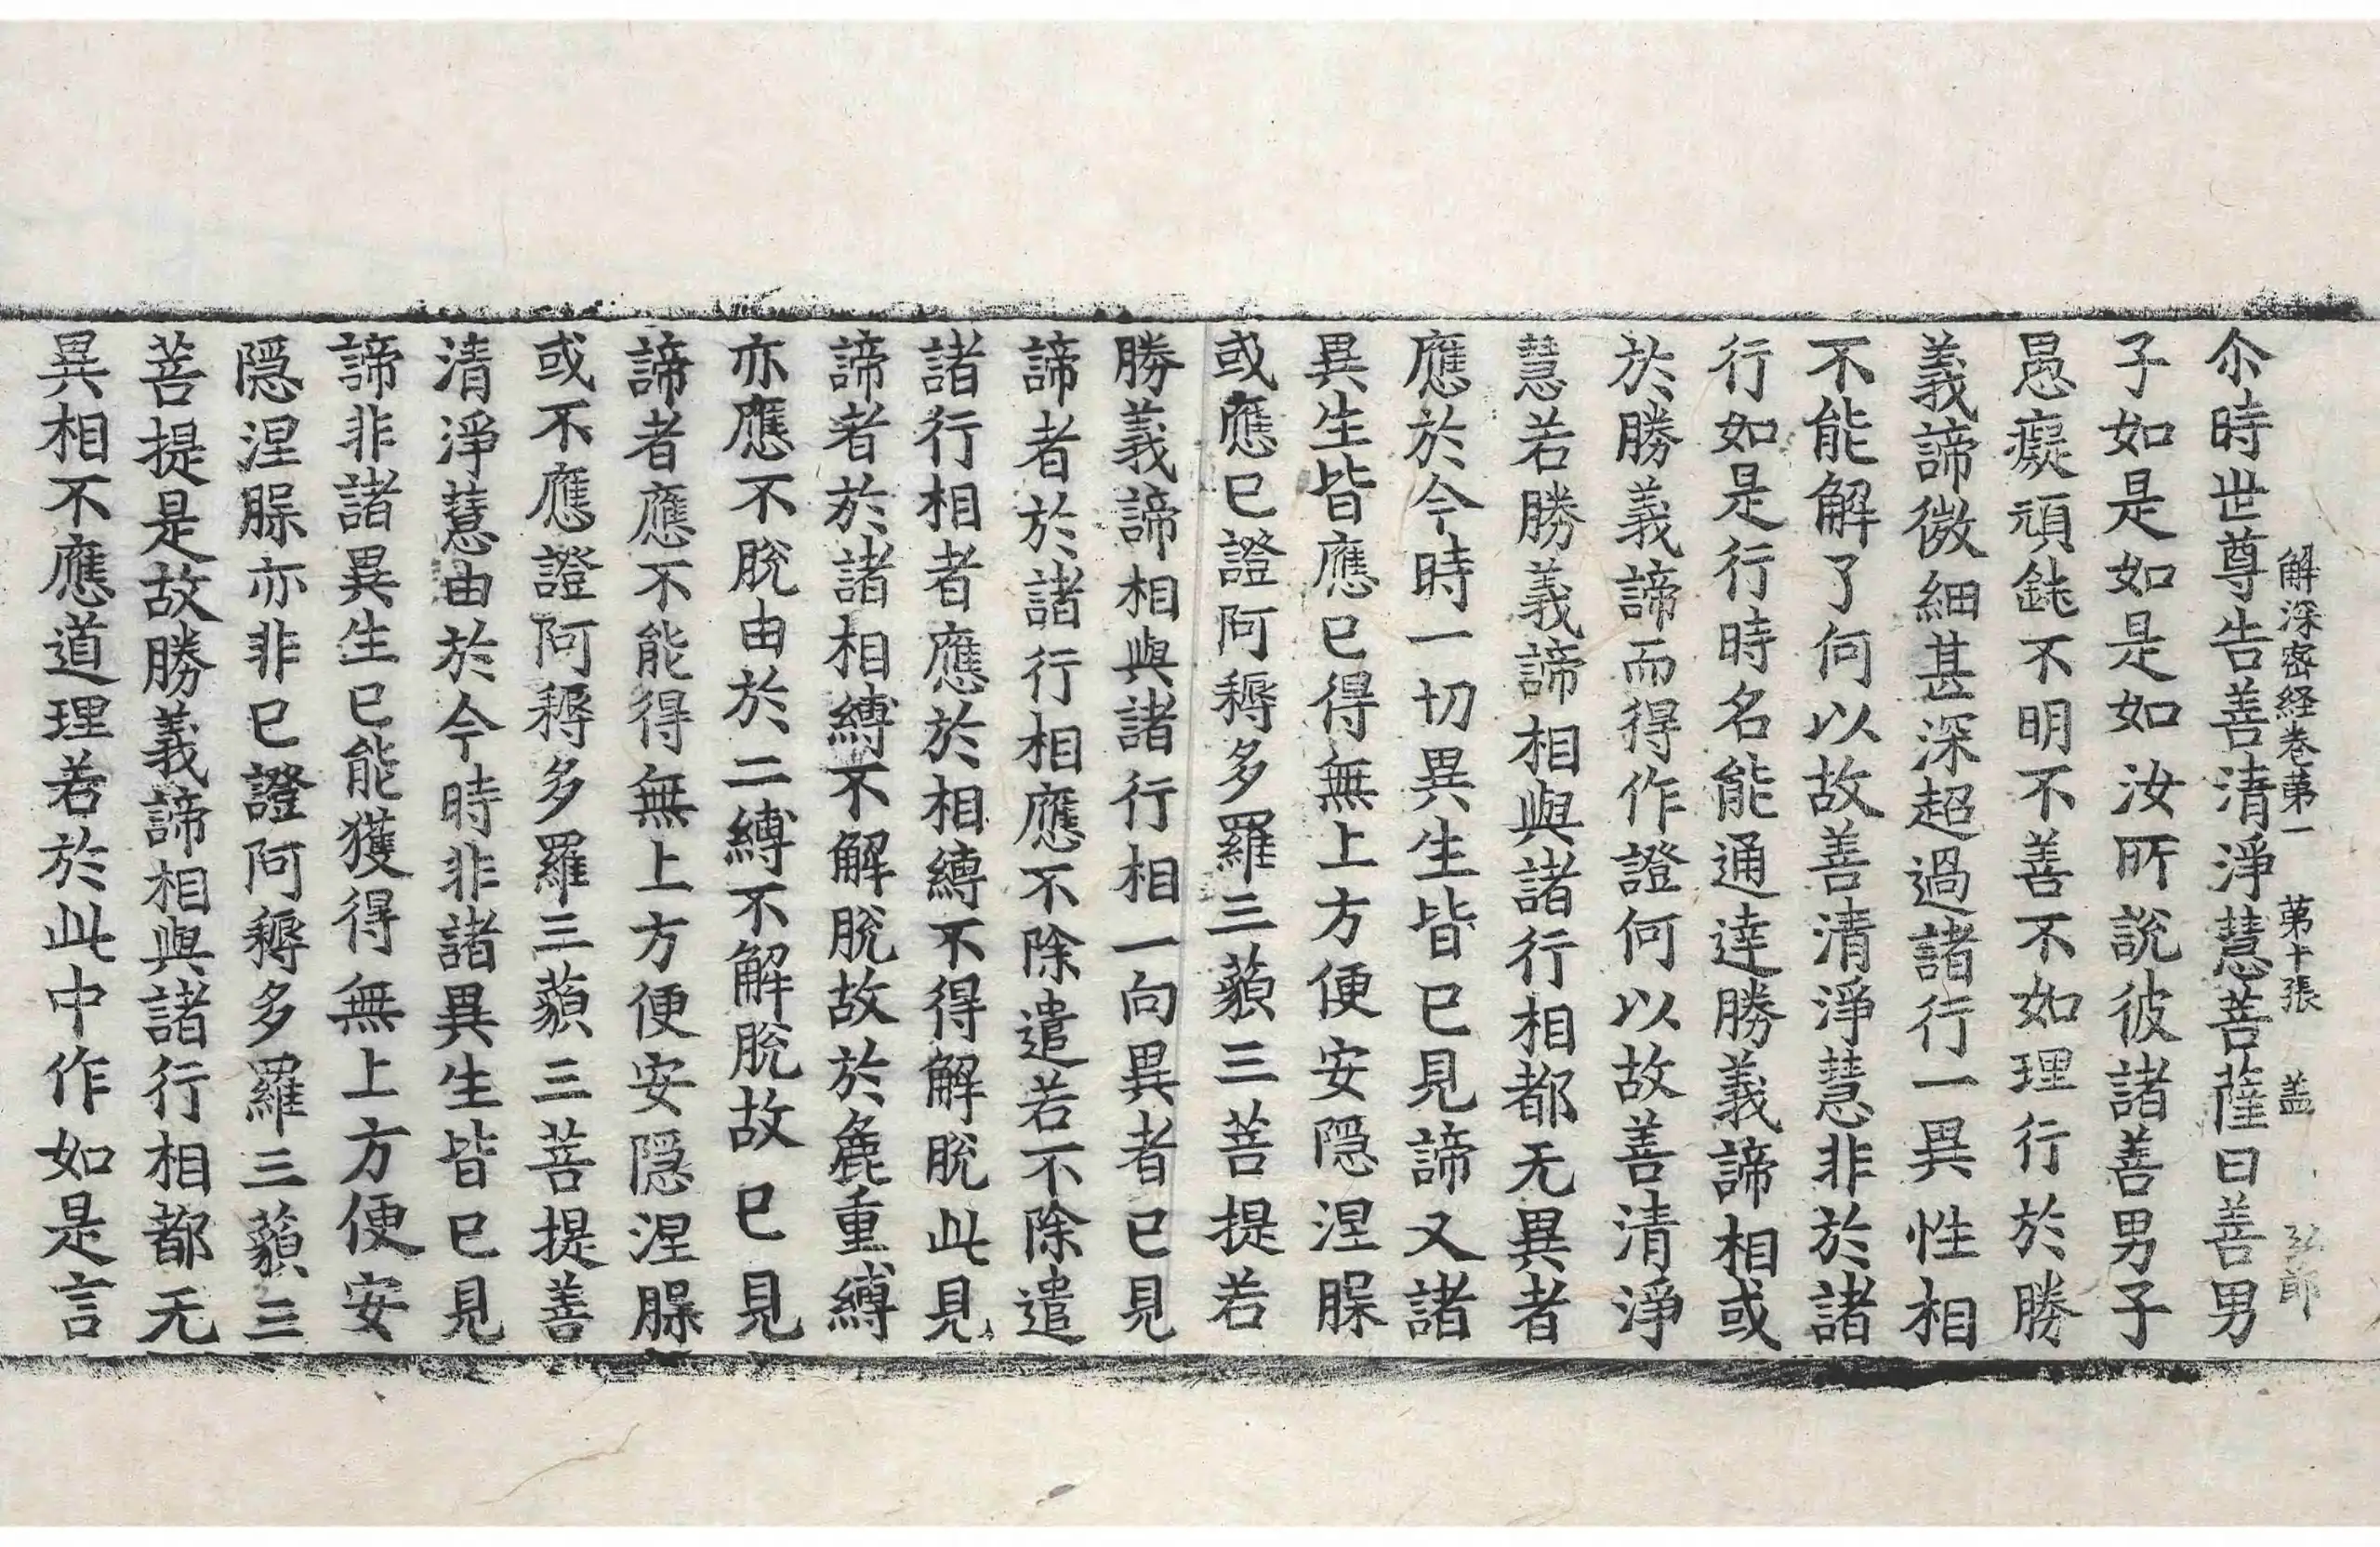 解深密経巻第一　第十張　盖　弘郎
尒時世尊告善清淨慧菩薩曰善男
子如是如是如汝所說彼諸善男子
愚癡頑鈍不明不善不如理行於勝
義諦微細甚深超過諸行一異性相
不能解了何以故善清淨慧非於諸
行如是行時名能通達勝義諦相或
於勝義諦而得作證何以故善清淨
慧若勝義諦相與諸行相都无異者
應於今時一切異生皆已見諦又諸
異生皆應已得無上方便安隱涅槃
或應已證阿耨多羅三藐三菩提若
勝義諦相與諸行相一向異者已見
諦者於諸行相應不除遣若不除遣
諸行相者應於相縛不得解脫此見
諦者於諸相縛不解脫故於麁重縛
亦應不脫由於二縛不解脫故已見
諦者應不能得無上方便安隱涅槃
或不應證阿耨多羅三藐三菩提善
清淨慧由於今時非諸異生皆已見
諦非諸異生已能獲得無上方便安
隱涅槃亦非已證阿耨多羅三藐三
菩提是故勝義諦相與諸行相都无
異相不應道理若於此中作如是言